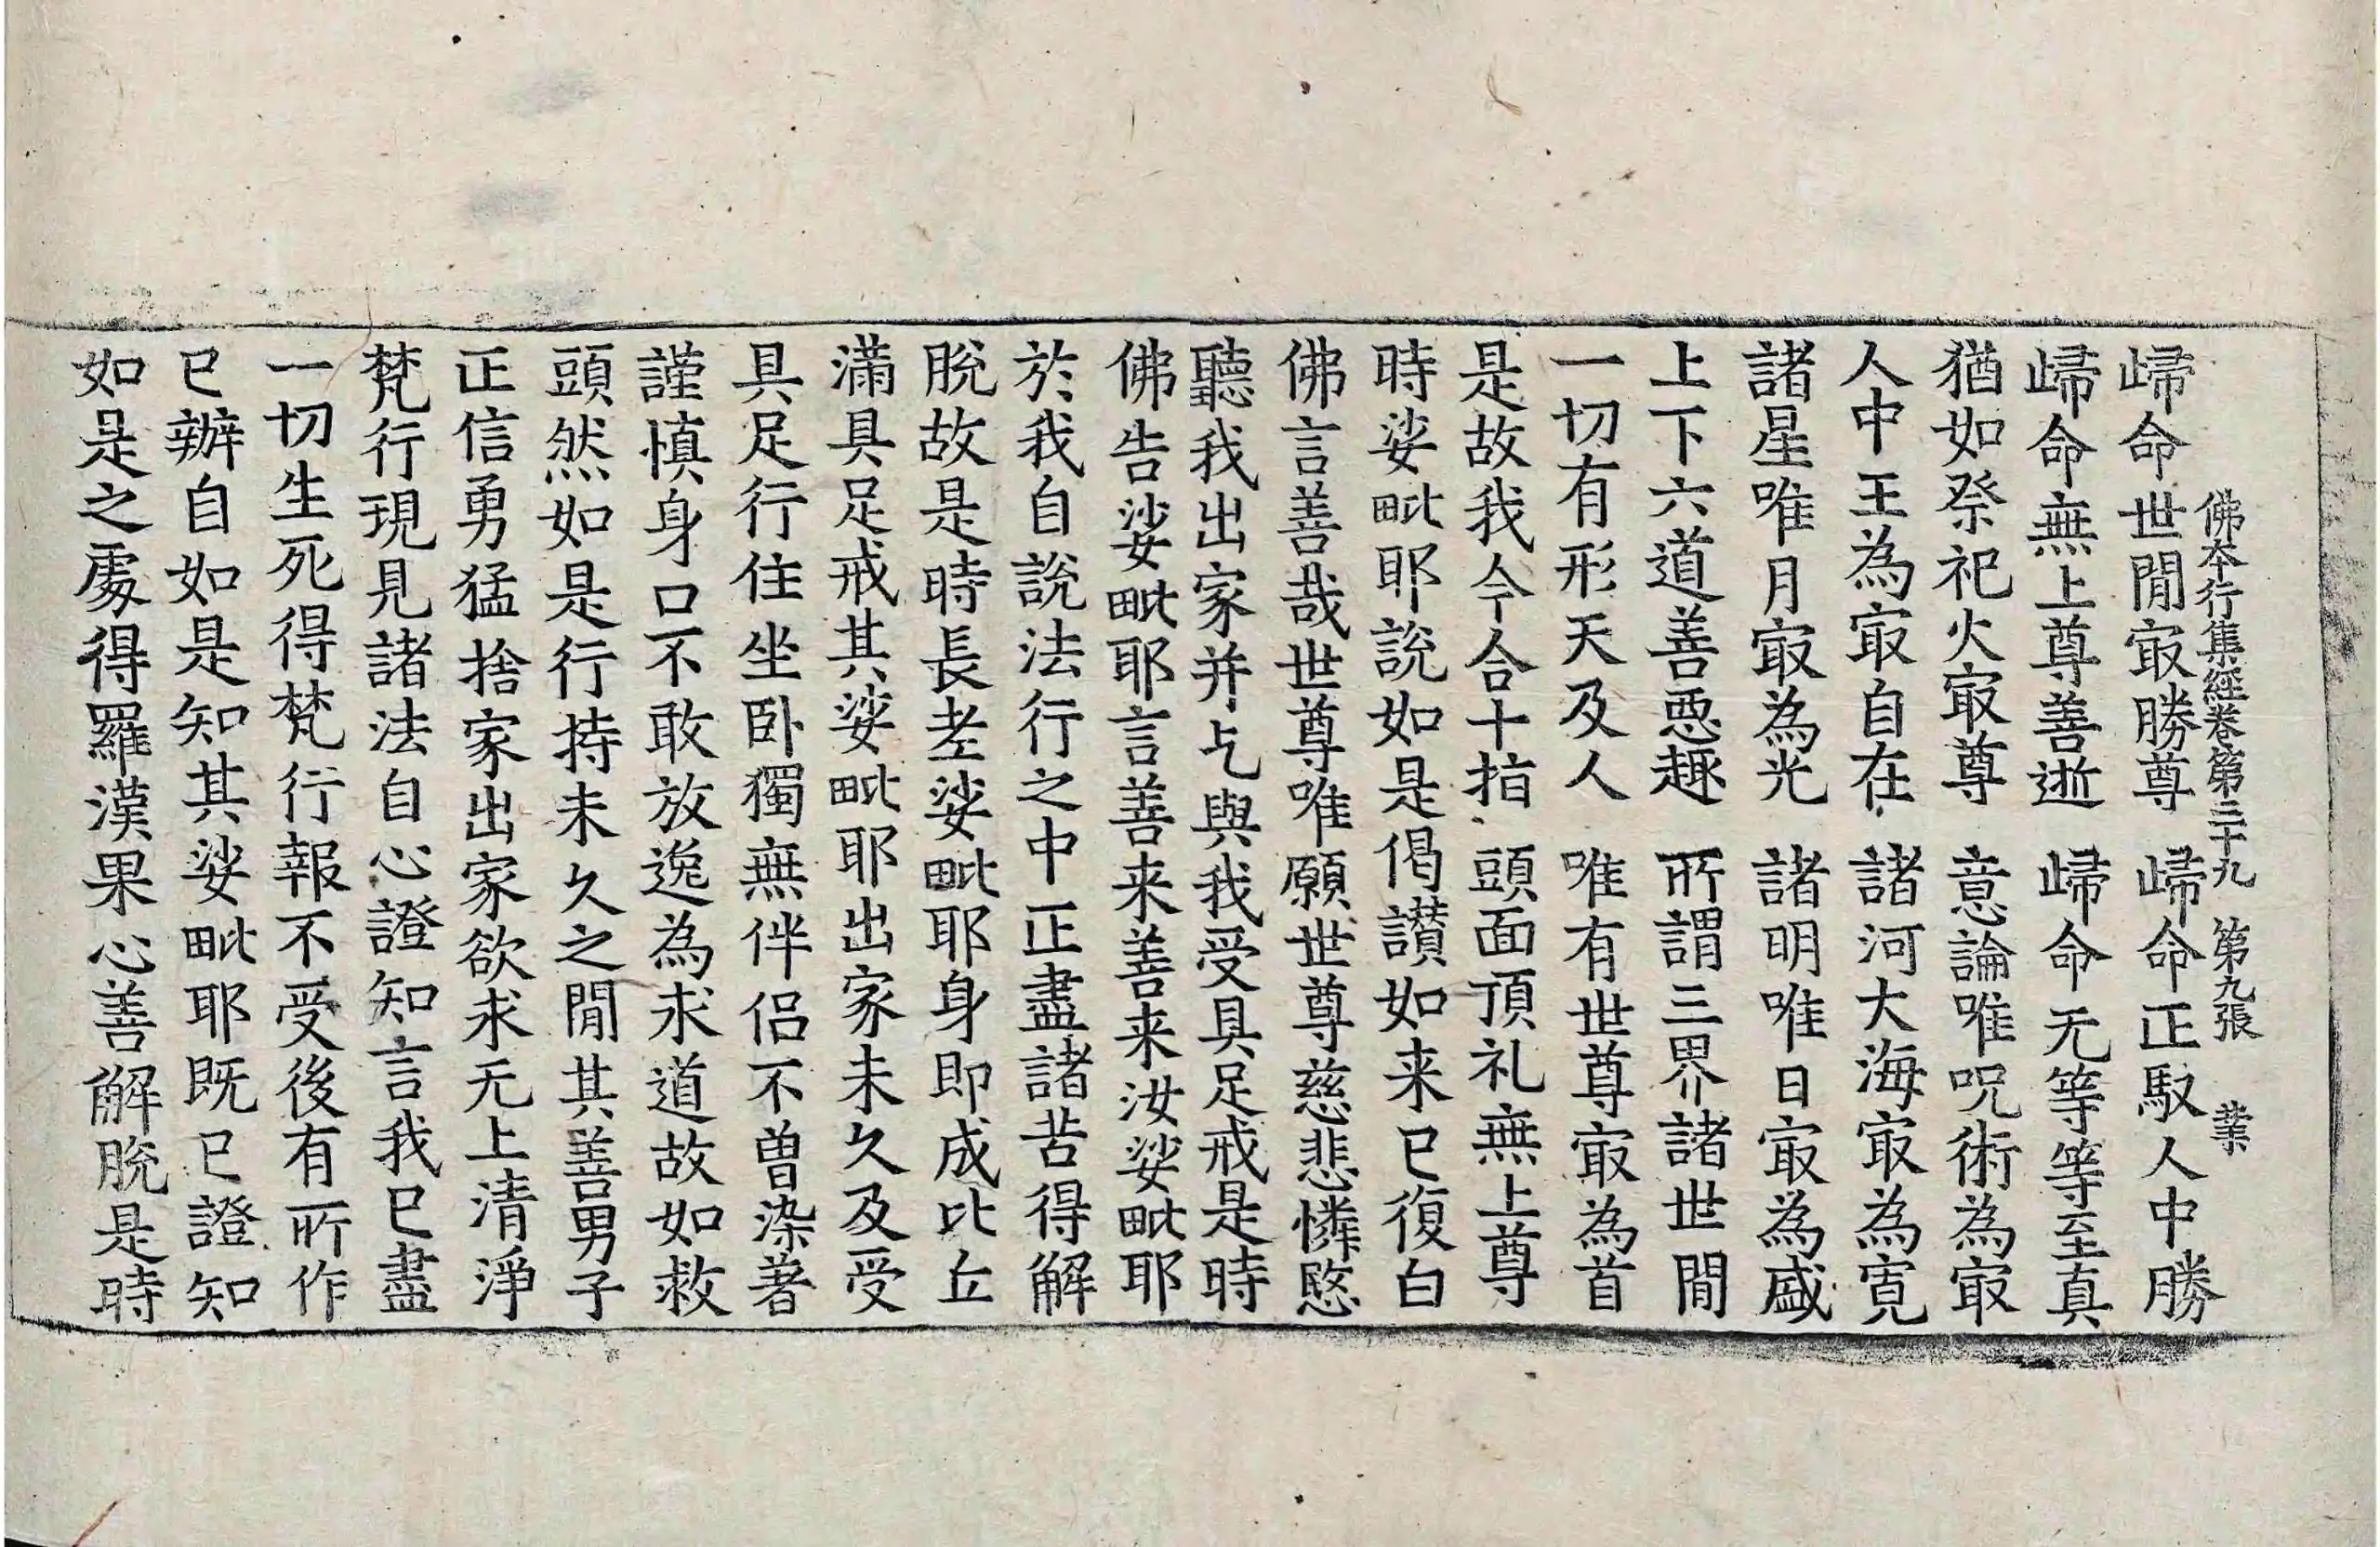 佛本行集經卷第三十九　第九張　業
歸命世閒㝡勝尊　歸命正馭人中勝
歸命無上尊善逝　歸命无等等至真
猶如祭祀火㝡尊　意論唯呪術為㝡
人中王為㝡自在　諸河大海㝡為寛
諸星唯月㝡為光　諸明唯日㝡為盛
上下六道善惡趣　所謂三界諸世間
一切有形天及人　唯有世尊㝡為首
是故我今合十指　頭面頂礼無上尊
時娑毗耶說如是偈讃如来已復白
佛言善哉世尊唯願世尊慈悲憐愍
聽我出家并乞與我受具足戒是時
佛告娑毗耶言善来善来汝娑毗耶
於我自說法行之中正盡諸苦得解
脫故是時長老娑毗耶身即成比丘
滿具足戒其娑毗耶出家未久及受
具足行住坐卧獨無伴侶不曽染著
謹慎身口不敢放逸為求道故如救
頭然如是行持未久之閒其善男子
正信勇猛捨家出家欲求无上清淨
梵行現見諸法自心證知言我已盡
一切生死得梵行報不受後有所作
已辦自如是知其娑毗耶既已證知
如是之處得羅漢果心善解脫是時